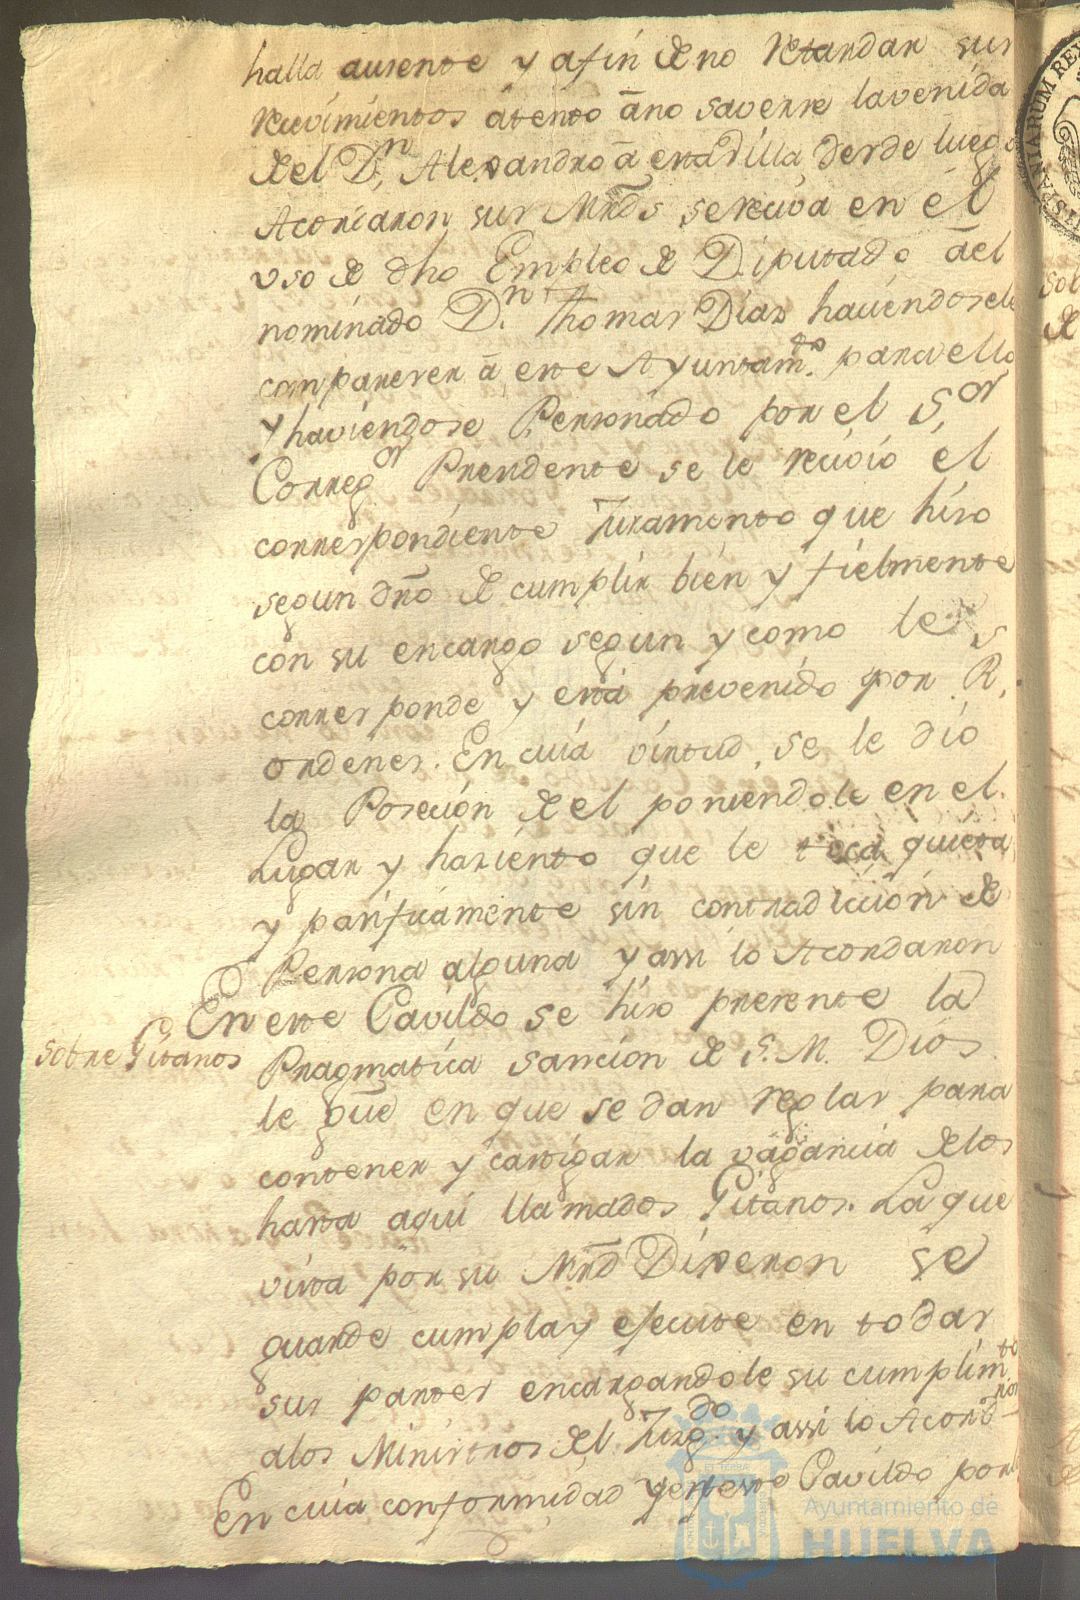 halla ausente y afin de no retardar sus
recivimientos atento âno saverse la venida
del Dn. Alexandro â esta Villa, desde luego
Acordaron sus Mrds se reciva en el
uso de dho Empleo de Diputado âel
nominado Dn. Thomas Diaz haciendosele
comparerer â este Ayuntamto. para ello
y haviendose Personado por el Sor
Corregor Presidente se le recivio el
correspondiente Juramento que hiso
segun dro de cumplir bien y fielmente
con su encargo segun y como le
corresponde y está prevenido por Rs.
ordenes. En cuia virtud, se le dio
la Posecion de el poniendole en el
Lugar y haziento que le toca quieta
y pasificamente sin contradiccion de
Persona alguna y assi lo Acordaron
sobre Gitanos
En este Cavildo se hiso presente la
Pragmatica sancion de S. M. Dios
le gue en que se dan reglas para
contener y castigar la vagancia delos
hasta aqui llamados Gitanos. La que
vista por su Mrd Dixeron se
guarde cumpla y ejecute en todas
sus partes encargandole su cumplimto
alos Ministros del Juzgdo. y assi lo Acordaron
En cuia conformidad y en este Cavildo por
HISPANIARUM REX
sob
de
Ayuntamiento de
HUELVA